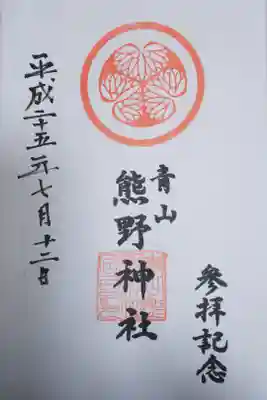 参拝記念
青山
熊野神社
平成二十五年七月十二日